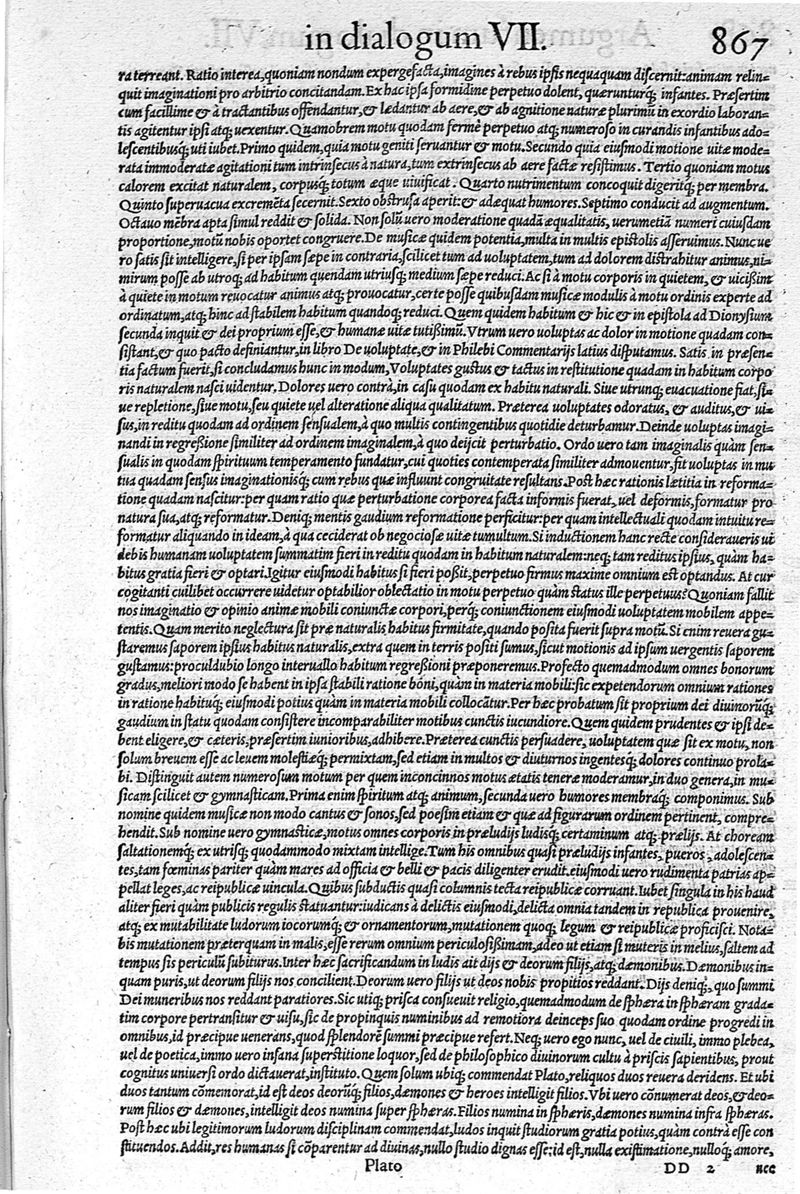 in dialogum VII. 867
ra terreant. Ratio interea, quoniam nondum expergefacta, imagines à rebus ipsis nequaquam discernit: animam relin=
quit imaginationi pro arbitrio concitandam. Ex hac ipsa formidine perpetuo dolent, quærunturq́; infantes. Præsertim
cum facillime & à tractantibus offendantur, & lædantur ab aere, & ab agnitione naturæ plurimũ in exordio laboran=
tis agitentur ipsi atq; uexentur. Quamobrem motu quodam fermè perpetuo atq; numeroso in curandis infantibus ado=
lescentibusq́; uti iubet. Primo quidem, quia motu geniti seruantur & motu. Secundo quia eiusmodi motione uitæ mode=
rata immoderatæ agitationi tum intrinsecus à natura, tum extrinsecus ab aere factæ resistimus. Tertio quoniam motus
calorem excitat naturalem, corpusq́; totum æque uiuificat. Quarto nutrimentum concoquit digeritq́; per membra.
Quinto superuacua excremẽta secernit. Sexto obstrusa aperit: & adæquat humores. Septimo conducit ad augmentum.
Octauo mẽbra apta simul reddit & solida. Non solũ uero moderatione quadã æqualitatis, uerumetiã numeri cuiusdam
proportione, motũ nobis oportet congruere. De musicæ quidem potentia, multa in multis epistolis asseruimus. Nunc ue
ro satis sit intelligere, si per ipsam sæpe in contraria, scilicet tum ad uoluptatem, tum ad dolorem distrahitur animus, ni=
mirum posse ab utroq; ad habitum quendam utriusq; medium sæpe reduci. Ac si à motu corporis in quietem, & uicißim
à quiete in motum reuocatur animus atq; prouocatur, certe posse quibusdam musicæ modulis à motu ordinis experte ad
ordinatum, atq; hinc ad stabilem habitum quandoq; reduci. Quem quidem habitum & hic & in epistola ad Dionysium
secunda inquit & dei proprium esse, & humanæ uitæ tutißimũ. Vtrum uero uoluptas ac dolor in motione quadam con=
sistant, & quo pacto definiantur, in libro De uoluptate, & in Philebi Commentarijs latius disputamus. Satis in præsen=
tia factum fuerit, si concludamus hunc in modum, Voluptates gustus & tactus in restitutione quadam in habitum corpo
ris naturalem nasci uidentur. Dolores uero contrà, in casu quodam ex habitu naturali. Siue utrunq; euacuatione fiat, si=
ue repletione, siue motu, seu quiete uel alteratione aliqua qualitatum. Præterea uoluptates odoratus, & auditus, & ui=
sus, in reditu quodam ad ordinem sensualem, à quo multis contingentibus quotidie deturbamur. Deinde uoluptas imagi=
nandi in regreßione similiter ad ordinem imaginalem, à quo deijcit perturbatio. Ordo uero tam imaginalis quàm sen=
sualis in quodam spirituum temperamento fundatur, cui quoties contemperata similiter admouentur, fit uoluptas in mu
tua quadam sensus imaginationisq́; cum rebus quæ influunt congruitate resultans. Post hæc rationis lætitia in reforma=
tione quadam nascitur: per quam ratio quæ perturbatione corporea facta informis fuerat, uel deformis, formatur pro
natura sua, atq; reformatur. Deniq; mentis gaudium reformatione perficitur: per quam intellectuali quodam intuitu re=
formatur aliquando in ideam, à qua ceciderat ob negociosæ uitæ tumultum. Si inductionem hanc recte consideraueris ui
debis humanam uoluptatem summatim fieri in reditu quodam in habitum naturalem: neq; tam reditus ipsius, quàm ha=
bitus gratia fieri & optari. Igitur eiusmodi habitus si fieri poßit, perpetuo firmus maxime omnium est optandus. At cur
cogitanti cuilibet occurrere uidetur optabilior oblectatio in motu perpetuo quàm status ille perpetuus? Quoniam fallit
nos imaginatio & opinio animæ mobili coniunctæ corpori, perq́; coniunctionem eiusmodi uoluptatem mobilem appe=
tentis. Quam merito neglectura sit præ naturalis habitus firmitate, quando posita fuerit supra motũ. Si enim reuera gu=
staremus saporem ipsius habitus naturalis, extra quem in terris positi sumus, sicut motionis ad ipsum uergentis saporem
gustamus: proculdubio longo interuallo habitum regreßioni præponeremus. Profecto quemadmodum omnes bonorum
gradus, meliori modo se habent in ipsa stabili ratione bóni, quàm in materia mobili: sic expetendorum omnium rationes
in ratione habituq́; eiusmodi potius quàm in materia mobili collocãtur. Per hæc probatum sit proprium dei diuinorũq́;
gaudium in statu quodam consistere incomparabiliter motibus cunctis iucundiore. Quem quidem prudentes & ipsi de=
bent eligere, & cæteris, præsertim iunioribus, adhibere. Præterea cunctis persuadere, uoluptatem quæ sit ex motu, non
solum breuem esse ac leuem molestiæq́; permixtam, sed etiam in multos & diuturnos ingentesq́; dolores continuo prola=
bi. Distinguit autem numerosum motum per quem inconcinnos motus ætatis teneræ moderamur, in duo genera, in mu=
sicam scilicet & gymnasticam. Prima enim spiritum atq; animum, secunda uero humores membraq́; componimus. Sub
nomine quidem musicæ non modo cantus & sonos, sed poesim etiam & quæ ad figurarum ordinem pertinent, compre=
hendit. Sub nomine uero gymnasticæ, motus omnes corporis in præludijs ludisq́; certaminum atq; prælijs. At choream
saltationemq́; ex utrisq; quodammodo mixtam intellige. Tum his omnibus quasi præludijs infantes, pueros, adolescen=
tes, tam fœminas pariter quàm mares ad officia & belli & pacis diligenter erudit. eiusmodi uero rudimenta patrias ap=
pellat leges, ac reipublicæ uincula. Quibus subductis quasi columnis tecta reipublicæ corruant. Iubet singula in his haud
aliter fieri quàm publicis regulis statuantur: iudicans à delictis eiusmodi, delicta omnia tandem in republica prouenire,
atq; ex mutabilitate ludorum iocorumq́; & ornamentorum, mutationem quoq; legum & reipublicæ proficisci. Nota=
bis mutationem præterquam in malis, esse rerum omnium periculosißimam, adeo ut etiam si muteris in melius, saltem ad
tempus sis periculũ subiturus. Inter hæc sacrificandum in ludis ait dijs & deorum filijs, atq; dæmonibus. Dæmonibus in=
quam puris, ut deorum filijs nos concilient. Deorum uero filijs ut deos nobis propitios reddant. Dijs deniq;, quo summi
Dei muneribus nos reddant paratiores. Sic utiq; prisca consueuit religio, quemadmodum de sphæra in sphæram grada=
tim corpore pertransitur & uisu, sic de propinquis numinibus ad remotiora deinceps suo quodam ordine progredi in
omnibus, id præcipue uenerans, quod splendorẽ summi præcipue refert. Neq; uero ego nunc, uel de ciuili, immo plebea,
uel de poetica, immo uero insana superstitione loquor, sed de philosophico diuinorum cultu à priscis sapientibus, prout
cognitus uniuersi ordo dictauerat, instituto. Quem solum ubiq; commendat Plato, reliquos duos reuera deridens. Et ubi
duos tantum cõmemorat, id est deos deorũq́; filios, dæmones & heroes intelligit filios. Vbi uero cõnumerat deos, & deo=
rum filios & dæmones, intelligit deos numina super sphæras. Filios numina in sphæris, dæmones numina infra sphæras.
Post hæc ubi legitimorum ludorum disciplinam commendat, ludos inquit studiorum gratia potius, quàm contrà esse con
stituendos. Addit, res humanas si cõparentur ad diuinas, nullo studio dignas esse: id est, nulla existimatione, nulloq́; amore,
Plato DD 2 nec